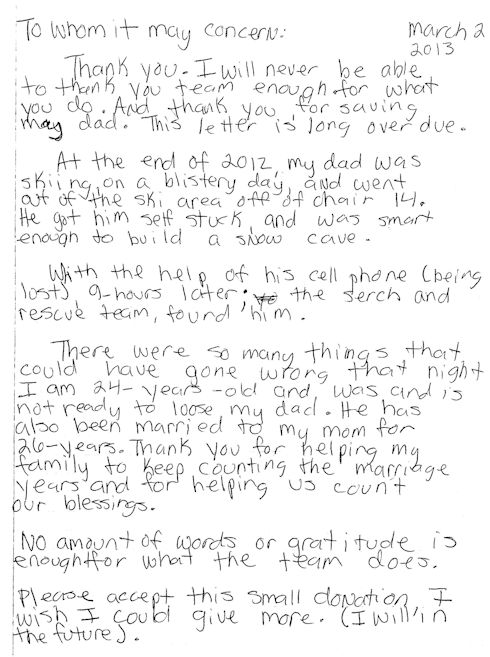 To whom it may concern:
March 2
2013
Thank you. I will never be able
to thank you team enough for what
you do. And thank you for saving
may dad. This letter is long over due.
At the end of 2012, my dad was
skiing on a blistery day, and went
out of the ski area off of chair 14.
He got him self stuck, and was smart
enough to build a snow cave.
With the help of his cell phone (being
lost), 9-hours later, the serch and
rescue team, found him.
There were so many things that
could have gone wrong that night
I am 24-years-old and was and is
not ready to loose my dad. He has
also been married to my mom for
26-years. Thank you for helping my
family to keep counting the marriage
years and for helping us count
our blessings.
No amount of words or gratitude is
enough for what the team does.
Please accept this small donation, I
wish I could give more. (I will in
the future).